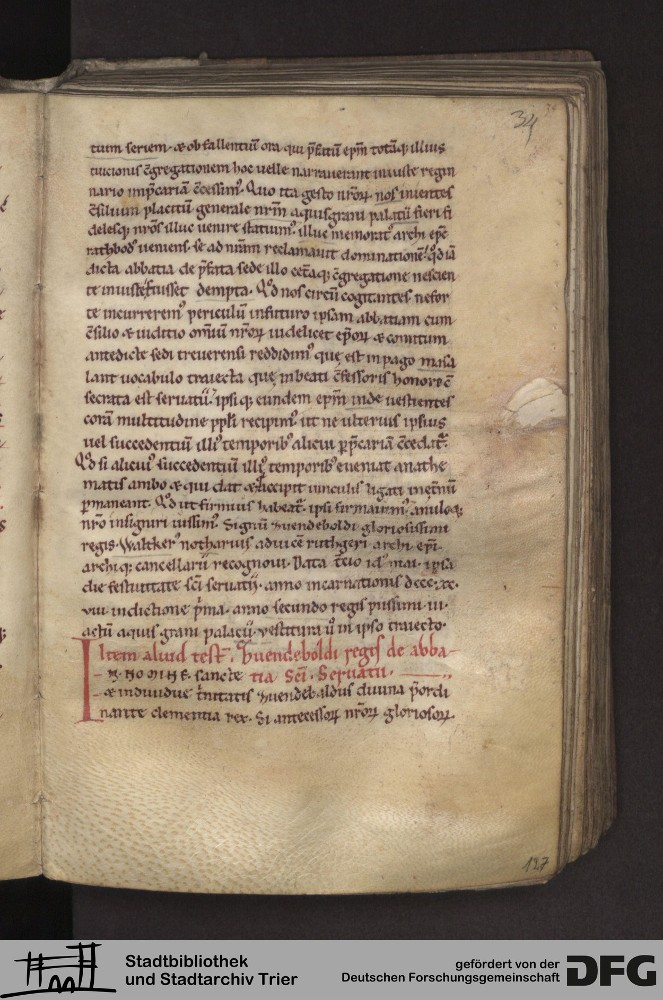 34
tum seriem· & ob fallentiū ora qui p̄fatū ep̄m totāq; illius
tuicionis c̄gregationem hoc uelle narrauerant iniuste regin
nario imp̄cariā c̄cessim᷒. Quo ita gesto nr̄oꝝ nos inientes
c̄silium placitū generale nr̄m aquisgrani palatii fieri fi
delesq; nr̄os illuc uenire statuim᷒. illuc memorat᷒ archi ep̄c
rathbod᷒ ueniens· se ad nimiū reclamauit dominatione· qd̄ iā
dicta abbatia de p̄fata sede illo cet̄aq; c̄gregatione nescien
te iniuste fuisset dempta. Qd̄ nos circū cogitantes ne for
te incurrerem᷒ periculū in futuro ipsam abbatiam cum
c̄silio & iuditio omniū nr̄oꝝ uidelicet ep̄oꝝ & comitum
antedicte sedi treuerensi reddidim᷒ que est in pago masa
lant uocabulo traiecta que in beati c̄fessoris honore c̄
secrata est seruatii· ipsiq; eundem ep̄m inde uestientes
corā multitudine pp̄li recipim᷒ ut ne ulterius ipsius
uel succedentiū illi᷒ temporib᷒ alicui p̱p̄cariā c̄cedat᷑.
Qd̄ si alicui᷒ succedentiū illi᷒ temporib᷒ eueniat anathe
matis ambo & qui dat & accipit uinculis ligati inet̄nū
ꝑmaneant. Qd̄ ut firmius habeat᷑ ipsi firmauim᷒· anuloq;
nr̄o insigniri iussim᷒. Signū zuendeboldi gloriosissimi
regis· Waltker᷒ notharius aduicē ruthgeri archi ep̄i·
archiq; cancellarii recognoui. Data t̄cio id᷒ mai· ipsa
die festiuitate sc̄i seruatii· anno incarnationis dccc·xc·
viii· indictione p̄ma· anno secundo regis piissimi iii·
actū aquis grani palacii· uestitura u̇ in ipso traiecto·
Item aliud test᷒. Zuendeboldi regis de abba-
tia Sc̄i· Seruatii·
IN NOMINE sancte
& indiuidue t̄nitatis zuendebaldus diuina p̄ordi
nante clementia rex. Si antecessoꝝ nr̄oꝝ gloriosoꝝ·
127
Stadtbibliothek
und Stadtarchiv Trier
gefördert von der
Deutschen Forschungsgemeinschaft
DFG